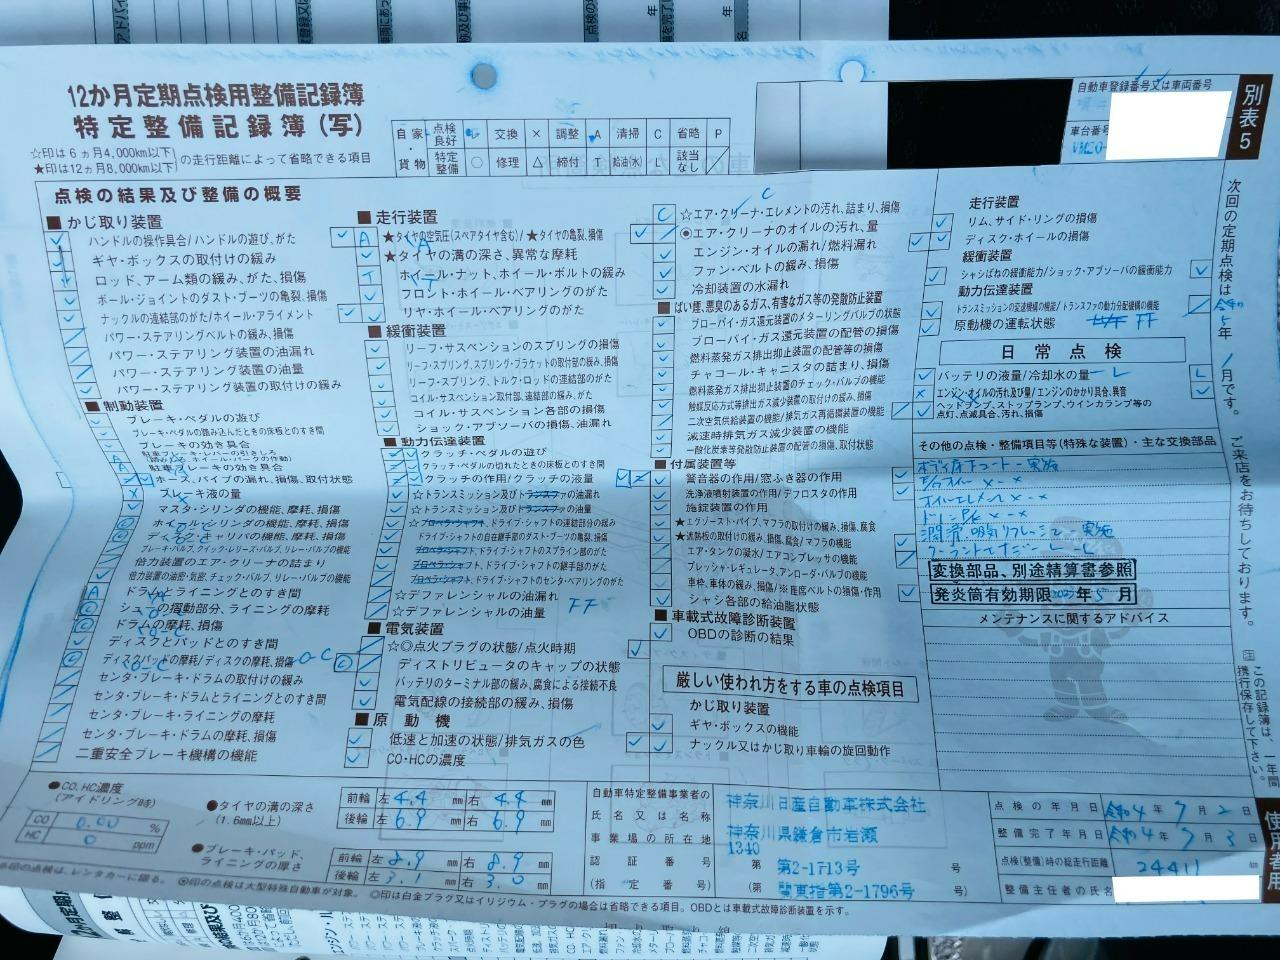 12か月定期点検用整備記録簿
特定整備記録簿(写)
☆印は6ヵ月4,000km以下
★印は12ヵ月8,000km以下
の走行距離によって省略できる項目
自家・貨物
点検良好 交換 × 調整 A 清掃 C 省略 P
特定整備 ○ 修理 △ 締付 T 給油(水) L 該当なし /
自動車登録番号又は車両番号
車台番号
別表5
点検の結果及び整備の概要
■かじ取り装置
ハンドルの操作具合/ハンドルの遊び、がた
ギヤ・ボックスの取付けの緩み
ロッド、アーム類の緩み、がた、損傷
ボール・ジョイントのダスト・ブーツの亀裂、損傷
ナックルの連結部のがた/ホイール・アライメント
パワー・ステアリングベルトの緩み、損傷
パワー・ステアリング装置の油漏れ
パワー・ステアリング装置の油量
パワー・ステアリング装置の取付けの緩み
■制動装置
ブレーキ・ペダルの遊び
ブレーキ・ペダルの踏み込んだときの床板とのすき間
ブレーキの効き具合
駐車ブレーキ・レバーの引きしろ
駐車ブレーキの効き具合
ホース、パイプの漏れ、損傷、取付状態
ブレーキ液の量
マスタ・シリンダの機能、摩耗、損傷
ホイール・シリンダの機能、摩耗、損傷
ディスク・キャリパの機能、摩耗、損傷
ブレーキ・バルブ、クイック・レリーズ・バルブ、リレー・バルブの機能
倍力装置のエア・クリーナの詰まり
倍力装置の油密・気密、チェック・バルブ、リレー・バルブの機能
ドラムとライニングとのすき間
シューの摺動部分、ライニングの摩耗
ドラムの摩耗、損傷
ディスクとパッドとのすき間
ディスクパッドの摩耗/ディスクの摩耗、損傷
センタ・ブレーキ・ドラムの取付けの緩み
センタ・ブレーキ・ドラムとライニングとのすき間
センタ・ブレーキ・ライニングの摩耗
センタ・ブレーキ・ドラムの摩耗、損傷
二重安全ブレーキ機構の機能
■走行装置
★タイヤの空気圧(スペアタイヤ含む)/★タイヤの亀裂、損傷
★タイヤの溝の深さ、異常な摩耗
ホイール・ナット、ホイール・ボルトの緩み
フロント・ホイール・ベアリングのがた
リヤ・ホイール・ベアリングのがた
■緩衝装置
リーフ・サスペンションのスプリングの損傷
リーフ・サスペンション、スプリング・ブラケットの取付部の緩み、損傷
リーフ・サスペンション、トルク・ロッドの連結部のがた
コイル・サスペンション取付部、連結部の緩み、がた
コイル・サスペンション各部の損傷
ショック・アブソーバの損傷、油漏れ
■動力伝達装置
クラッチ・ペダルの遊び
クラッチ・ペダルの切れたときの床板とのすき間
クラッチの作用/クラッチの液量
☆トランスミッション及びトランスファの油漏れ
☆トランスミッション及びトランスファの油量
☆プロペラ・シャフト、ドライブ・シャフトの連結部分の緩み
ドライブ・シャフトの自在継手部のダスト・ブーツの亀裂、損傷
プロペラ・シャフト、ドライブ・シャフトのスプライン部のがた
プロペラ・シャフト、ドライブ・シャフトの継手部のがた
プロペラ・シャフト、ドライブ・シャフトのセンタ・ベアリングのがた
☆デファレンシャルの油漏れ
☆デファレンシャルの油量 FF
■電気装置
☆◎点火プラグの状態/点火時期
ディストリビュータのキャップの状態
バッテリのターミナル部の緩み、腐食による接続不良
電気配線の接続部の緩み、損傷
■原動機
低速と加速の状態/排気ガスの色
CO・HCの濃度
☆エア・クリーナ・エレメントの汚れ、詰まり、損傷
◉エア・クリーナのオイルの汚れ、量
エンジン・オイルの漏れ/燃料漏れ
ファン・ベルトの緩み、損傷
冷却装置の水漏れ
■ばい煙、悪臭のあるガス、有害なガス等の発散防止装置
ブローバイ・ガス還元装置のメターリングバルブの状態
ブローバイ・ガス還元装置の配管の損傷
燃料蒸発ガス排出抑止装置の配管等の損傷
チャコール・キャニスタの詰まり、損傷
燃料蒸発ガス排出抑止装置のチェック・バルブの機能
触媒反応方式等排出ガス減少装置の取付けの緩み、損傷
二次空気供給装置の機能/排気ガス再循環装置の機能
減速時排気ガス減少装置の機能
一酸化炭素等発散防止装置の配管の損傷、取付状態
■付属装置等
警音器の作用/窓ふき器の作用
洗浄液噴射装置の作用/デフロスタの作用
施錠装置の作用
★エグゾースト・パイプ、マフラの取付けの緩み、損傷、腐食
★遮熱板の取付けの緩み、損傷、腐食/マフラの機能
エア・タンクの凝水/エアコンプレッサの機能
プレッシャ・レギュレータ、アンローダ・バルブの機能
車枠、車体の緩み、損傷/※座席ベルトの損傷・作用
シャシ各部の給油脂状態
■車載式故障診断装置
OBDの診断の結果
厳しい使われ方をする車の点検項目
かじ取り装置
ギヤ・ボックスの機能
ナックル又はかじ取り車輪の旋回動作
走行装置
リム、サイド・リングの損傷
ディスク・ホイールの損傷
緩衝装置
シャシばねの緩衝能力/ショック・アブソーバの緩衝能力
動力伝達装置
トランスミッションの変速機構の機能/トランスファの動力分配機構の機能
原動機の運転状態 FF
日常点検
バッテリの液量/冷却水の量 L
エンジン・オイルの汚れ及び量/エンジンのかかり具合、異音
ヘッドランプ、ストップランプ、ウインカランプ等の点灯、点滅具合、汚れ、損傷
その他の点検・整備項目等(特殊な装置)・主な交換部品
変換部品、別途精算書参照
発炎筒有効期限2023年5月
メンテナンスに関するアドバイス
次回の定期点検は 令和5年 /月です。 ご来店をお待ちしております。
注 この記録簿は、一年間携行保存して下さい。
使用者用
●CO、HC濃度
(アイドリング時)
CO 0.00 %
HC 0 ppm
●タイヤの溝の深さ
(1.6mm以上)
前輪 左 4.4 mm 右 4.4 mm
後輪 左 6.9 mm 右 6.9 mm
●ブレーキ・パッド、ライニングの厚さ
前輪 左 8.9 mm 右 8.9 mm
後輪 左 3.1 mm 右 3.0 mm
自動車特定整備事業者の氏名又は名称 神奈川日産自動車株式会社
事業場の所在地 神奈川県鎌倉市岩瀬1340
認証番号 第 第2-1713号 号
(指定番号) (第 関東指第2-1796号 号)
点検の年月日 令和4年7月2日
整備完了年月日 令和4年7月3日
点検(整備)時の総走行距離 24411 km
整備主任者の氏名
※印の点検は、レンタカーに限る。 ◉印の点検は大型特殊自動車が対象。 ◎印は白金プラグ又はイリジウム・プラグの場合は省略できる項目。OBDとは車載式故障診断装置を示す。